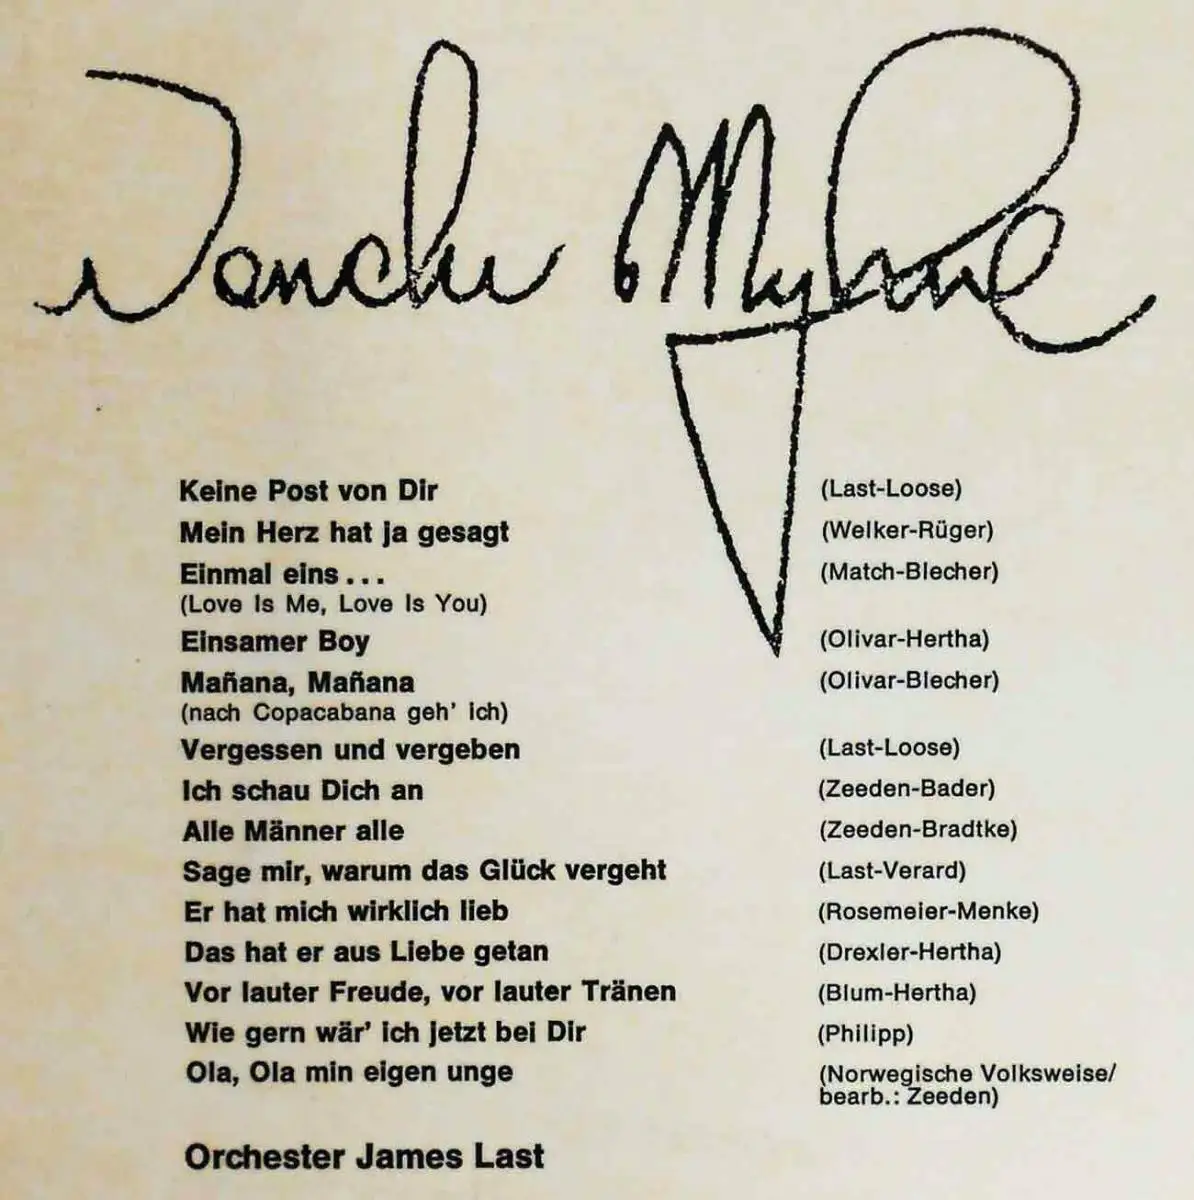 Wenche Myhre
Keine Post von Dir (Last-Loose)
Mein Herz hat ja gesagt (Welker-Rüger)
Einmal eins... (Match-Blecher)
(Love Is Me, Love Is You)
Einsamer Boy (Olivar-Hertha)
Mañana, Mañana (Olivar-Blecher)
(nach Copacabana geh' ich)
Vergessen und vergeben (Last-Loose)
Ich schau Dich an (Zeeden-Bader)
Alle Männer alle (Zeeden-Bradtke)
Sage mir, warum das Glück vergeht (Last-Verard)
Er hat mich wirklich lieb (Rosemeier-Menke)
Das hat er aus Liebe getan (Drexler-Hertha)
Vor lauter Freude, vor lauter Tränen (Blum-Hertha)
Wie gern wär' ich jetzt bei Dir (Philipp)
Ola, Ola min eigen unge (Norwegische Volksweise/
bearb.: Zeeden)
Orchester James Last